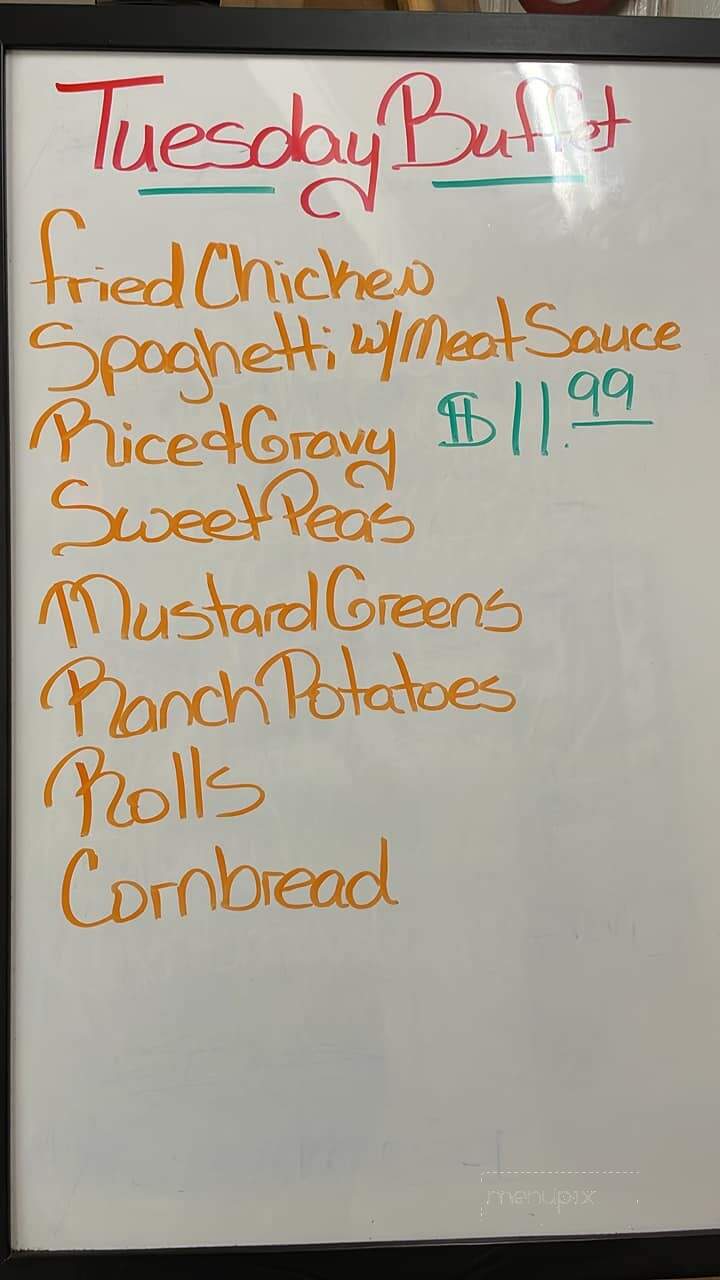 Tuesday Buffet
Fried Chicken
Spaghetti w/ Meat Sauce
Rice & Gravy $11.99
Sweet Peas
Mustard Greens
Ranch Potatoes
Rolls
Cornbread
menupix